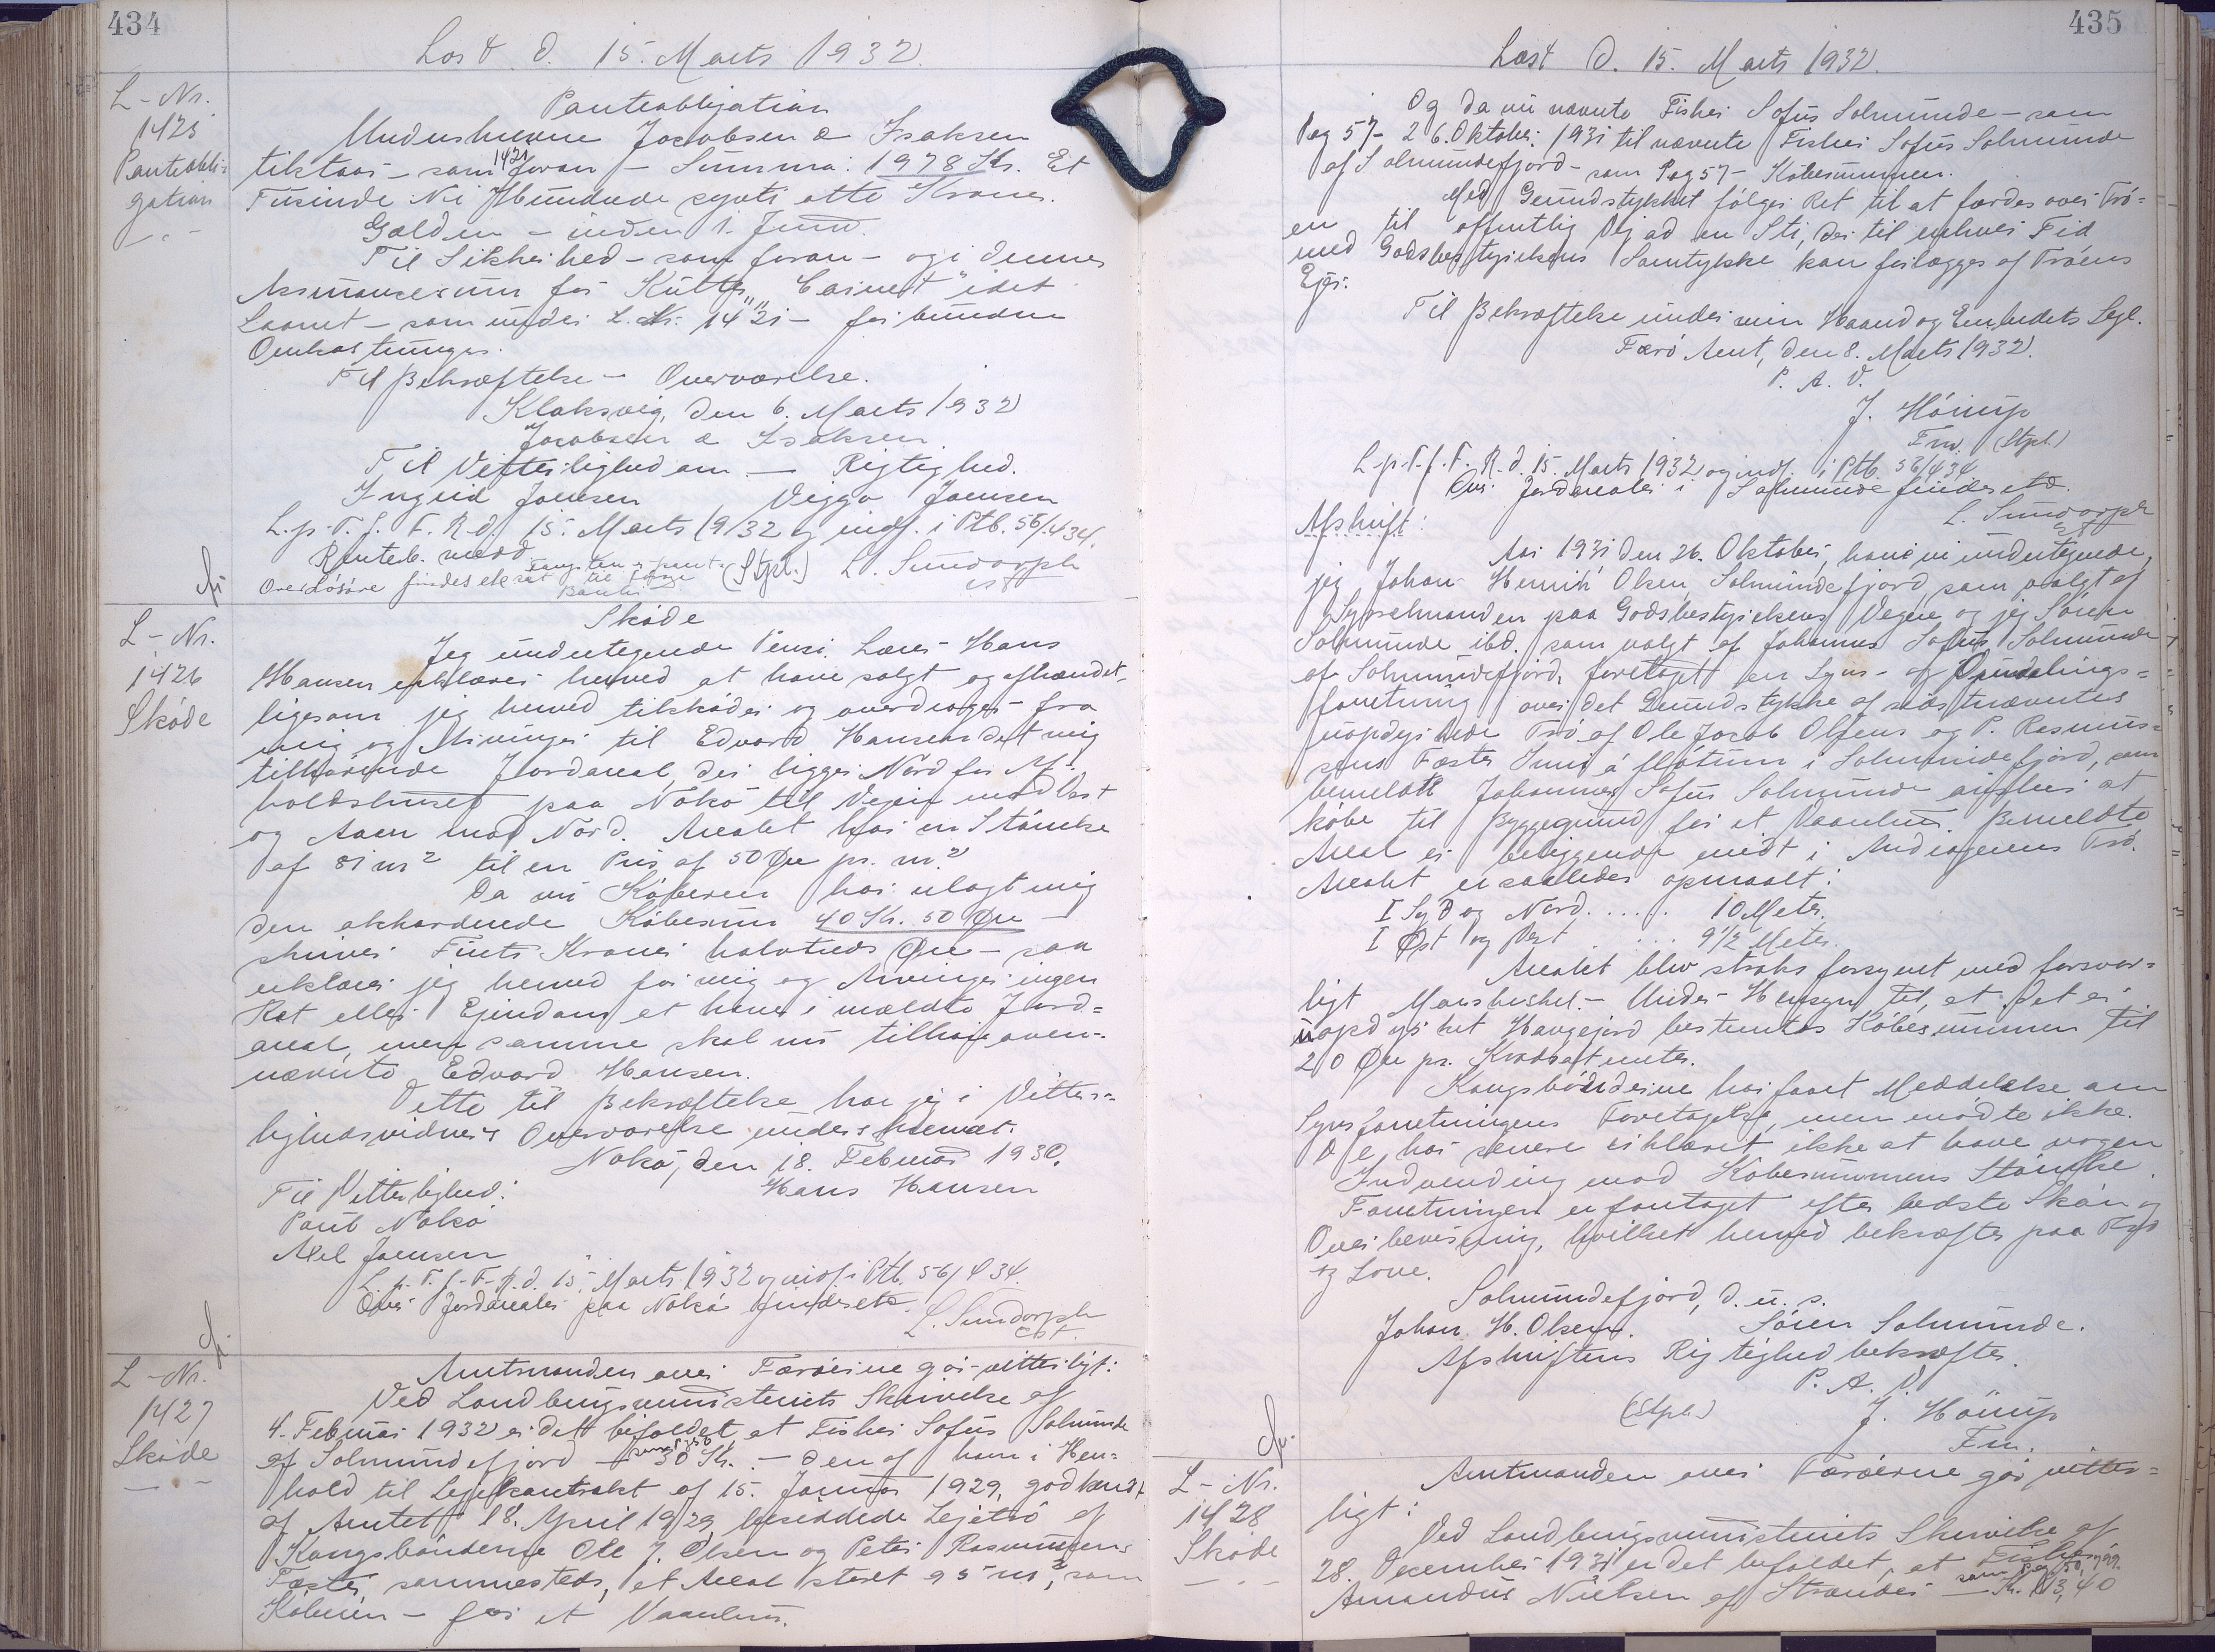 434
Læst d. 15. Marts 1932.
L-Nr.
1425
Panteobli-
gation
Panteobligation
Undershrevne Jacobsen & Isaksen
tilstaar - som 1421 foran - Summa: 1978 Kr. Et
Tusinde Ni Hundrede syvti otte Kroner.
Gælden - inden 1. Juni.
Til Sikkerhed - som foran - og i dennes
Assurancesum for Kutter "Carnet" idet
Laanet - som under L. Nr. 1421 - forbundne
Omkostninger.
Til Bekræftelse - Overværelse.
Klaksvig, den 6. Marts 1932
Jacobsen & Isaksen.
Til Vitterlighed om - Rigtighed.
Ingrid Joensen Viggo Joensen
L. p. T. f. F. R. d. 15. Marts 1932 og indf. i Ptb. 56/434.
Panteb. med
Over Løsøre findes ekstr (Stpl.) L. Sundorph
cst
L-Nr.
1426
Skøde
Skøde
Jeg undertegnede Pens. Lærer Hans
Hansen erklærer herved at have solgt og afhændet,
ligesom jeg herved tilskøder og overdrager fra
mig og Arvinger til Edvard Hansen det mig
tilhørende Jordareal, der ligger Nord for Af-
holdshuset paa Nokø til Vejen mod Øst
og Aaen mod Nord. Arealet har en Størrelse
af 81 m² til en Pris af 50 Øre pr. m²
Da nu Køberen har erlagt mig
den akkorderede Købesum 40 Kr. 50 Øre -
skriver Firti Kroner halvtreds Øre - saa
erklærer jeg herved for mig og Arvinger ingen
Ret eller Ejendom at have i meldte Jord-
areal, men samme skal nu tilhøre oven-
nævnte Edvard Hansen.
Dette til Bekræftelse har jeg i Vitter-
lighedsvidners Overværelse underskrevet.
Nokø, den 18. Februar 1930.
Til Vitterlighed: Hans Hansen
Poul Nokø
Axel Joensen
L. p. T. f. F. R. d. 15. Marts 1932 og indf. i Ptb. 56/434.
Over Jordarealer paa Nokø findes etc. L. Sundorph
cst.
L-Nr.
1427
Skøde
Amtmanden over Færøerne gør vitterligt:
Ved Landbrugsministeriets Skrivelse af
4. Februar 1932 er det bifaldet, at Fisker Sofus Solmunde
af Solmundefjord - 30 Kr. - den af ham i Hen-
hold til Lejekontrakt af 15. Januar 1929, godkendt
af Amtet 18. April 1929 besiddede Lejetrø af
Kongsbønderne Ole J. Olsen og Peter Rasmussens
Fæster sammesteds, et Areal stort 95 m², som
Køberen - for et Vaanhus.
435
Læst d. 15. Marts 1932.
Og da nu nævnte Fisker Sofus Solmunde - som
Pag 57 - 26. Oktober 1931 til nævnte Fisker Sofus Solmunde
af Solmundefjord - som Pag 57 - Købesummen.
Med Grundstykket følger Ret til at færdes over Trø-
en til offentlig Vej ad en Sti, der til enhver Tid
med Godsbestyrelsens Samtykke kan forlægges af Trøens
Ejer.
Til Bekræftelse under min Haand og Embedets Segl.
Færø Amt, den 8. Marts 1932.
P. A. V.
J. Hörup
Fm. (Stpl.)
L. p. T. f. F. R. d. 15. Marts 1932 og indf. i Ptb. 56/434
Over Jordarealer i Solmunde findes etc.
L. Sundorph
cst
Afskrift:
Aar 1931 den 26. Oktober, have vi undertegnede,
jeg Johan Henrik Olsen, Solmundefjord, som valgt af
Sysselmanden paa Godsbestyrelsens Vegne og jeg Sören
Solmunde ibd. som valgt af Johannes Sofus Solmunde
af Solmundefjord, foretaget en Syns- og Opmaalings-
forretning over det Grundstykke af sidstnævntes
uopdyrkede Trø af Ole Jacob Olsens og P. Rasmus-
sens Fæste Inni á fløtum i Solmundefjord, som
bemeldte Johannes Sofus Solmunde attraar at
købe til Byggegrund for et Vaanhus. Bemeldte
Areal er beliggende midt i Andragerens Trø.
Arealet er saaledes opmaalt:
I Syd og Nord..... 10 Meter.
I Øst og Vest ..... 9½ Meter.
Arealet blev straks forsynet med forsvar-
ligt Mærkeskel. - Under Hensyn til, at det er
uopdyrket Haugejord bestemtes Købesummen til
20 Øre pr. Kvadratmeter.
Kongsbønderne har faaet Meddelelse om
Synsforretningens Foretagelse, men mødte ikke.
De har senere erklæret ikke at have nogen
Indvending mod Købesummens Størrelse.
Forretningen er foretaget efter bedste Skøn og
Overbevisning, hvilket herved bekræftes paa Tro
og Love.
Solmundefjord, d. u. s.
Johan H. Olsen. Sören Solmunde.
Afskriftens Rigtighed bekræftes.
P. A. V.
(Stpl.) J. Hörup
Fm.
L-Nr.
1428
Skøde
Amtmanden over Færøerne gør vitter-
ligt:
Ved Landbrugsministeriets Skrivelse af
28. December 1931 er det bifaldet, at Fisker
Amandus Nielsen af Strænder - Kr. 113,40